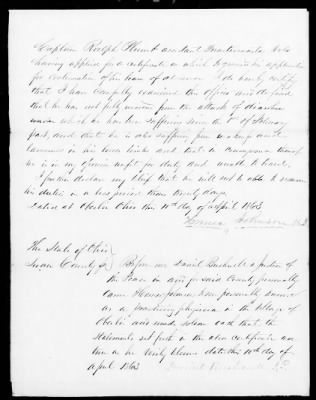 Captain Ralph Plumb assistant Quartermaster Vols
having applied for a certificate on which to ground an application
for continuation of his leave of absence I do hereby certify
that I have carefully examined this officer and find
that he has not fully recovered from the attack of diarrhea
under which he has been suffering since the 1st of February
past, and that he is also suffering from
lameness in his lower limbs and that in consequence thereof
he is in my opinion unfit for duty and unable to travel.
I further declare my belief that he will not be able to resume
his duties in a less period than twenty days
Dated at Oberlin Ohio this 10th day of April 1863
Johnson M.D.
The State of Ohio
Lorain County, ss Before me Daniel Bushnell a Justice of
the Peace in and for said County personally
came Homer Johnson to me personally known
as a practicing physician in the Village of
Oberlin and made solemn oath that the
statements set forth in the above certificate are
true as he verily believes dated this 10th day of
April 1863
Daniel Bushnell J.P.